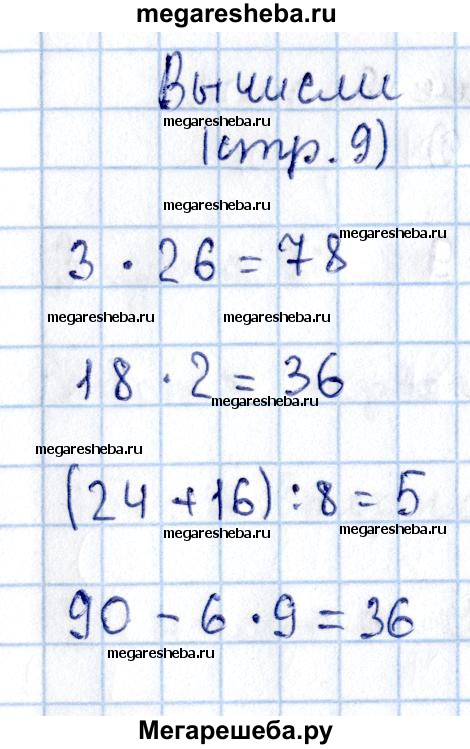 megaresheba.ru
Вычисли
megaresheba.ru
(стр. 9)
megaresheba.ru
megaresheba.ru
3 · 26 = 78
megaresheba.ru megaresheba.ru
18 · 2 = 36
megaresheba.ru
megaresheba.ru
(24 + 16) : 8 = 5
megaresheba.ru megaresheba.ru
90 - 6 · 9 = 36
megaresheba.ru
Мегарешеба.ру